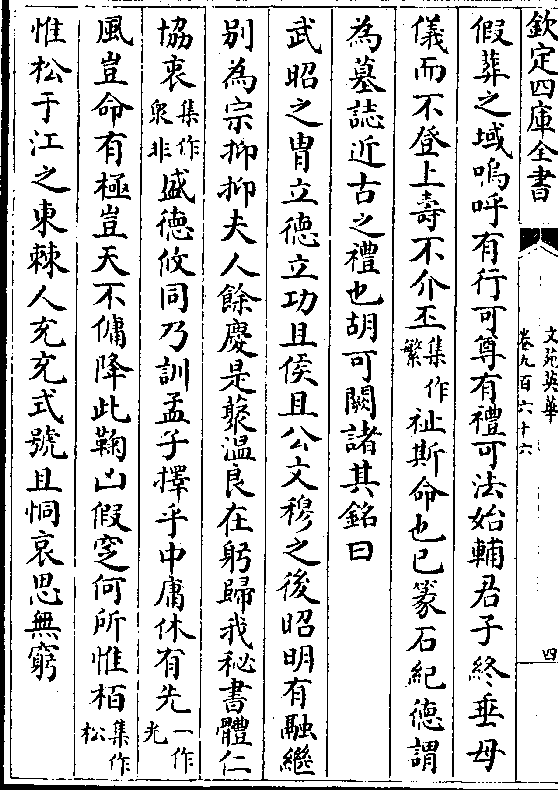 欽定四庫全書
文苑英華
卷九百六十六
四
假葬之域嗚呼有行可尊有禮可法始輔君子終垂母
儀而不登上壽不介丕集作繁祉斯命也已篆石紀德謂
為墓誌近古之禮也胡可闕諸其銘曰
武昭之胄立德立功且侯且公文穆之後昭明有融繼
别為宗抑抑夫人餘慶是䕺溫良在躬歸我秘書體仁
協衷集作衆非盛德攸同乃訓孟子擇乎中庸休有先一作光
風豈命有極豈天不傭降此鞠凶假窆何所惟栢集作松
惟松于江之東棘人充充式號且恫哀思無窮